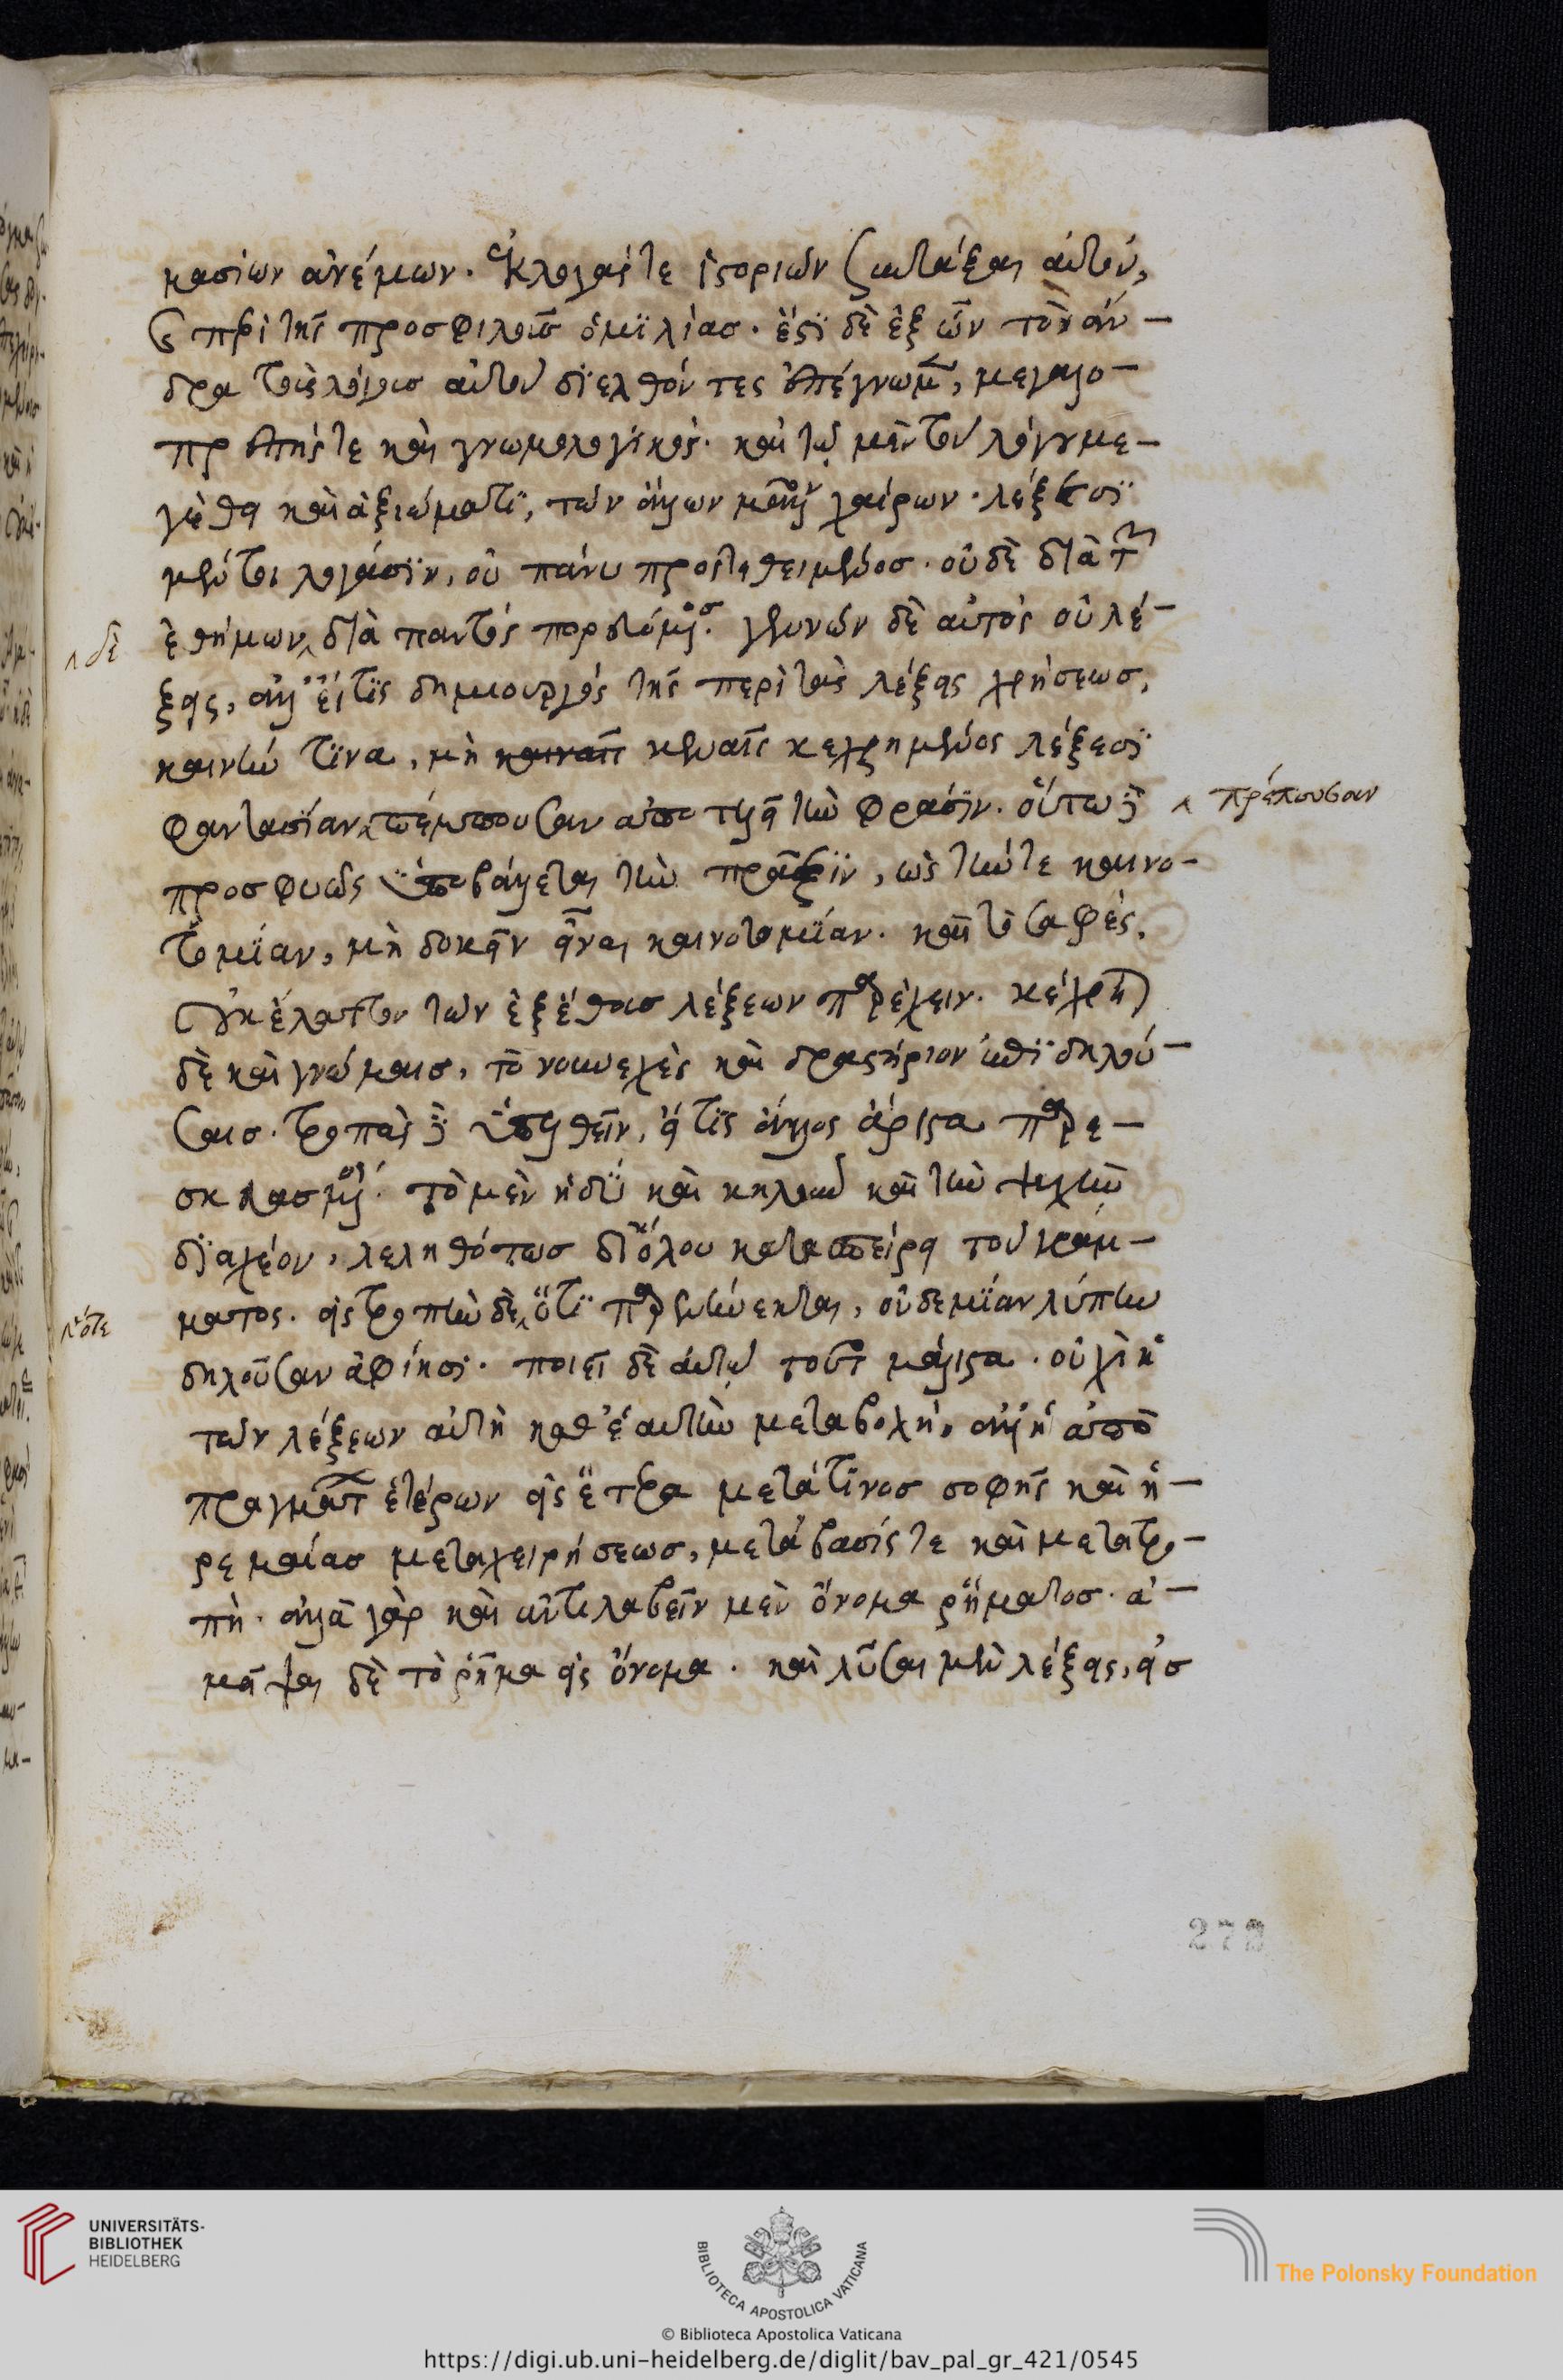 κασίων ἀνέμων. ἐκλογάς τε ἱστοριῶν συντάξαι αὐτόν,
καὶ περὶ τῆς προσφιλοῦς ὁμιλίας. ἔστι δὲ ἐξ ὧν τὸν ἄν-
δρα τοῖς λόγοις αὐτοῦ διελθόντες ἐπέγνωμεν, μεγαλο-
πρεπής τε καὶ γνωμολογικός. καὶ τῷ μὲν τοῦ λόγου με-
γέθει καὶ ἀξιώματι, τῶν ἄλλων μᾶλλον χαίρων. λέξεσι
μέντοι λογάσιν, οὐ πάνυ προστεθειμένος. οὐδὲ διὰ τῶν
ἐθήμων διὰ παντὸς πορευόμενος. γεννῶν δὲ αὐτὸς οὐ λέ-
δὲ
ξεις, ἀλλ' εἴ τις δημιουργὸς τῆς περὶ τὰς λέξεις χρήσεως,
καινήν τινα, μὴ καιναῖς κεναῖς κεχρημένος λέξεσι
φαντασίαν πέμπουσαν ἀποτελεῖ τὴν φράσιν. οὕτω δὲ
πρέπουσαν
προσφυῶς ὑποβάλλεται τὴν πρᾶξιν, ὡς τήν τε καινο-
τομίαν, μὴ δοκεῖν εἶναι καινοτομίαν. καὶ τὸ σαφές,
οὐκ ἔλαττον τῶν ἐξ ἔθους λέξεων παρέχειν. κέχρηται
δὲ καὶ γνώμαις, τὸ νουνεχὲς καὶ δραστήριον ἐπιδηλού-
σαις. τροπὰς δὲ ὑπελθεῖν, εἴ τις ἄλλος ἄριστα παρε-
σκευασμένος. τὸ μὲν ἡδὺ καὶ κηλοῦν καὶ τὴν ψυχὴν
διαχέον, λεληθότως δι' ὅλου κατασπείρει τοῦ γράμ-
ματος. εἰς τροπὴν δὲ ὅτι παρενήνεκται, οὐδεμίαν λύπην
ὅτε
δηλοῦσαν ἀφίησι. ποιεῖ δὲ αὐτῷ τοῦτο μάλιστα. οὐχὶ ἡ
τῶν λέξεων αὐτὴ καθ' ἑαυτὴν μεταβολή, ἀλλ' ἡ ἀπὸ
πραγμάτων ἑτέρων εἰς ἕτερα μετά τινος σοφῆς καὶ ἠ-
ρεμαίας μεταχειρήσεως, μετάβασίς τε καὶ μετατρο-
πή. ἀλλὰ γὰρ καὶ ἀντιλαβεῖν μὲν ὄνομα ῥήματος. ἀ-
μεῖψαι δὲ τὸ ῥῆμα εἰς ὄνομα. καὶ λῦσαι μὲν λέξεις, εἰς
273
UNIVERSITÄTS-
BIBLIOTHEK
HEIDELBERG
BIBLIOTECA APOSTOLICA VATICANA
The Polonsky Foundation
© Biblioteca Apostolica Vaticana
https://digi.ub.uni-heidelberg.de/diglit/bav_pal_gr_421/0545